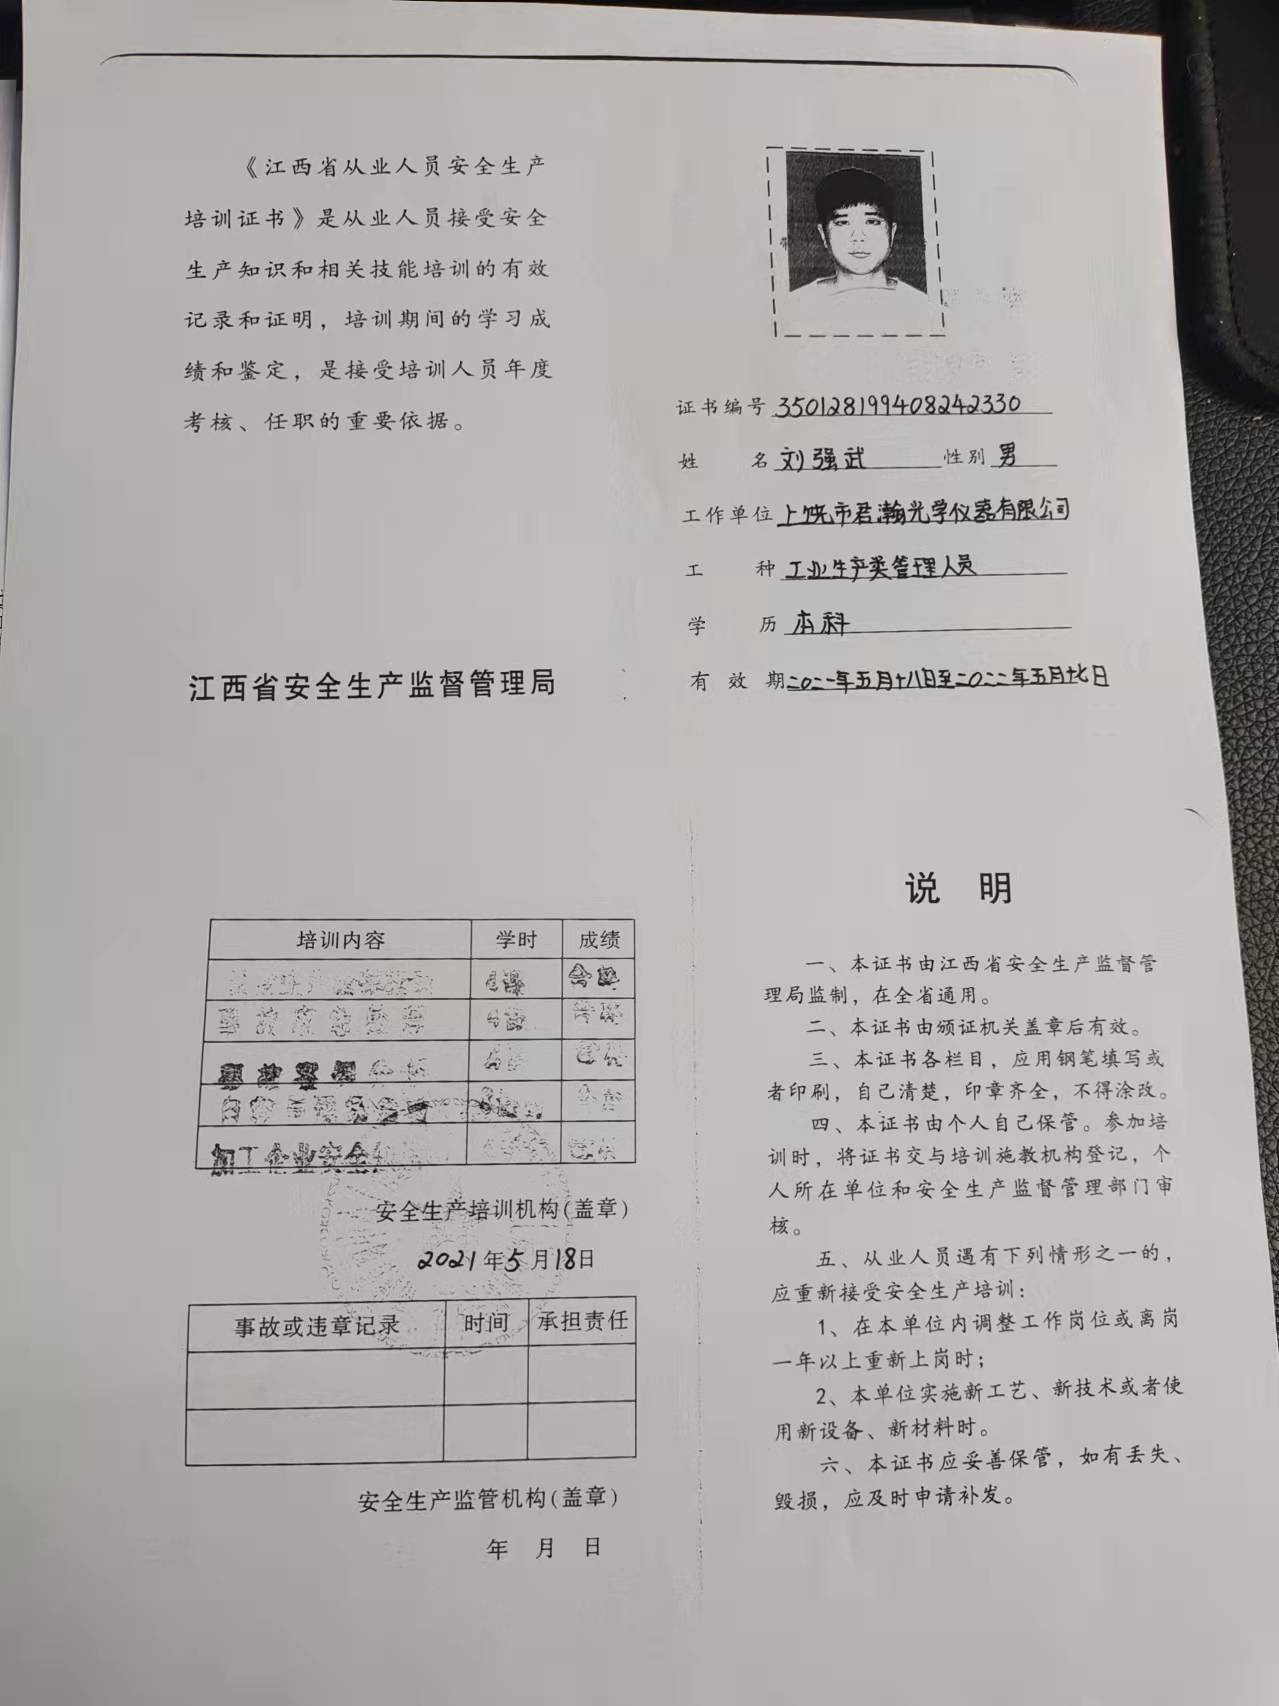 《江西省从业人员安全生产
培训证书》是从业人员接受安全
生产知识和相关技能培训的有效
记录和证明，培训期间的学习成
绩和鉴定，是接受培训人员年度
考核、任职的重要依据。
江西省安全生产监督管理局
证书编号 350128199408242330
姓 名 刘强武 性别 男
工作单位 上饶市君瀚光学仪器有限公司
工 种 工业生产类管理人员
学 历 本科
有 效 期 二〇二一年五月十八日至二〇二二年五月十七日
培训内容 学时 成绩
加工企业安全
安全生产培训机构(盖章)
2021年5月18日
事故或违章记录 时间 承担责任
安全生产监管机构(盖章)
年 月 日
说 明
一、本证书由江西省安全生产监督管
理局监制，在全省通用。
二、本证书由颁证机关盖章后有效。
三、本证书各栏目，应用钢笔填写或
者印刷，自己清楚，印章齐全，不得涂改。
四、本证书由个人自己保管。参加培
训时，将证书交与培训施教机构登记，个
人所在单位和安全生产监督管理部门审
核。
五、从业人员遇有下列情形之一的，
应重新接受安全生产培训：
1、在本单位内调整工作岗位或离岗
一年以上重新上岗时；
2、本单位实施新工艺、新技术或者使
用新设备、新材料时。
六、本证书应妥善保管，如有丢失、
毁损，应及时申请补发。